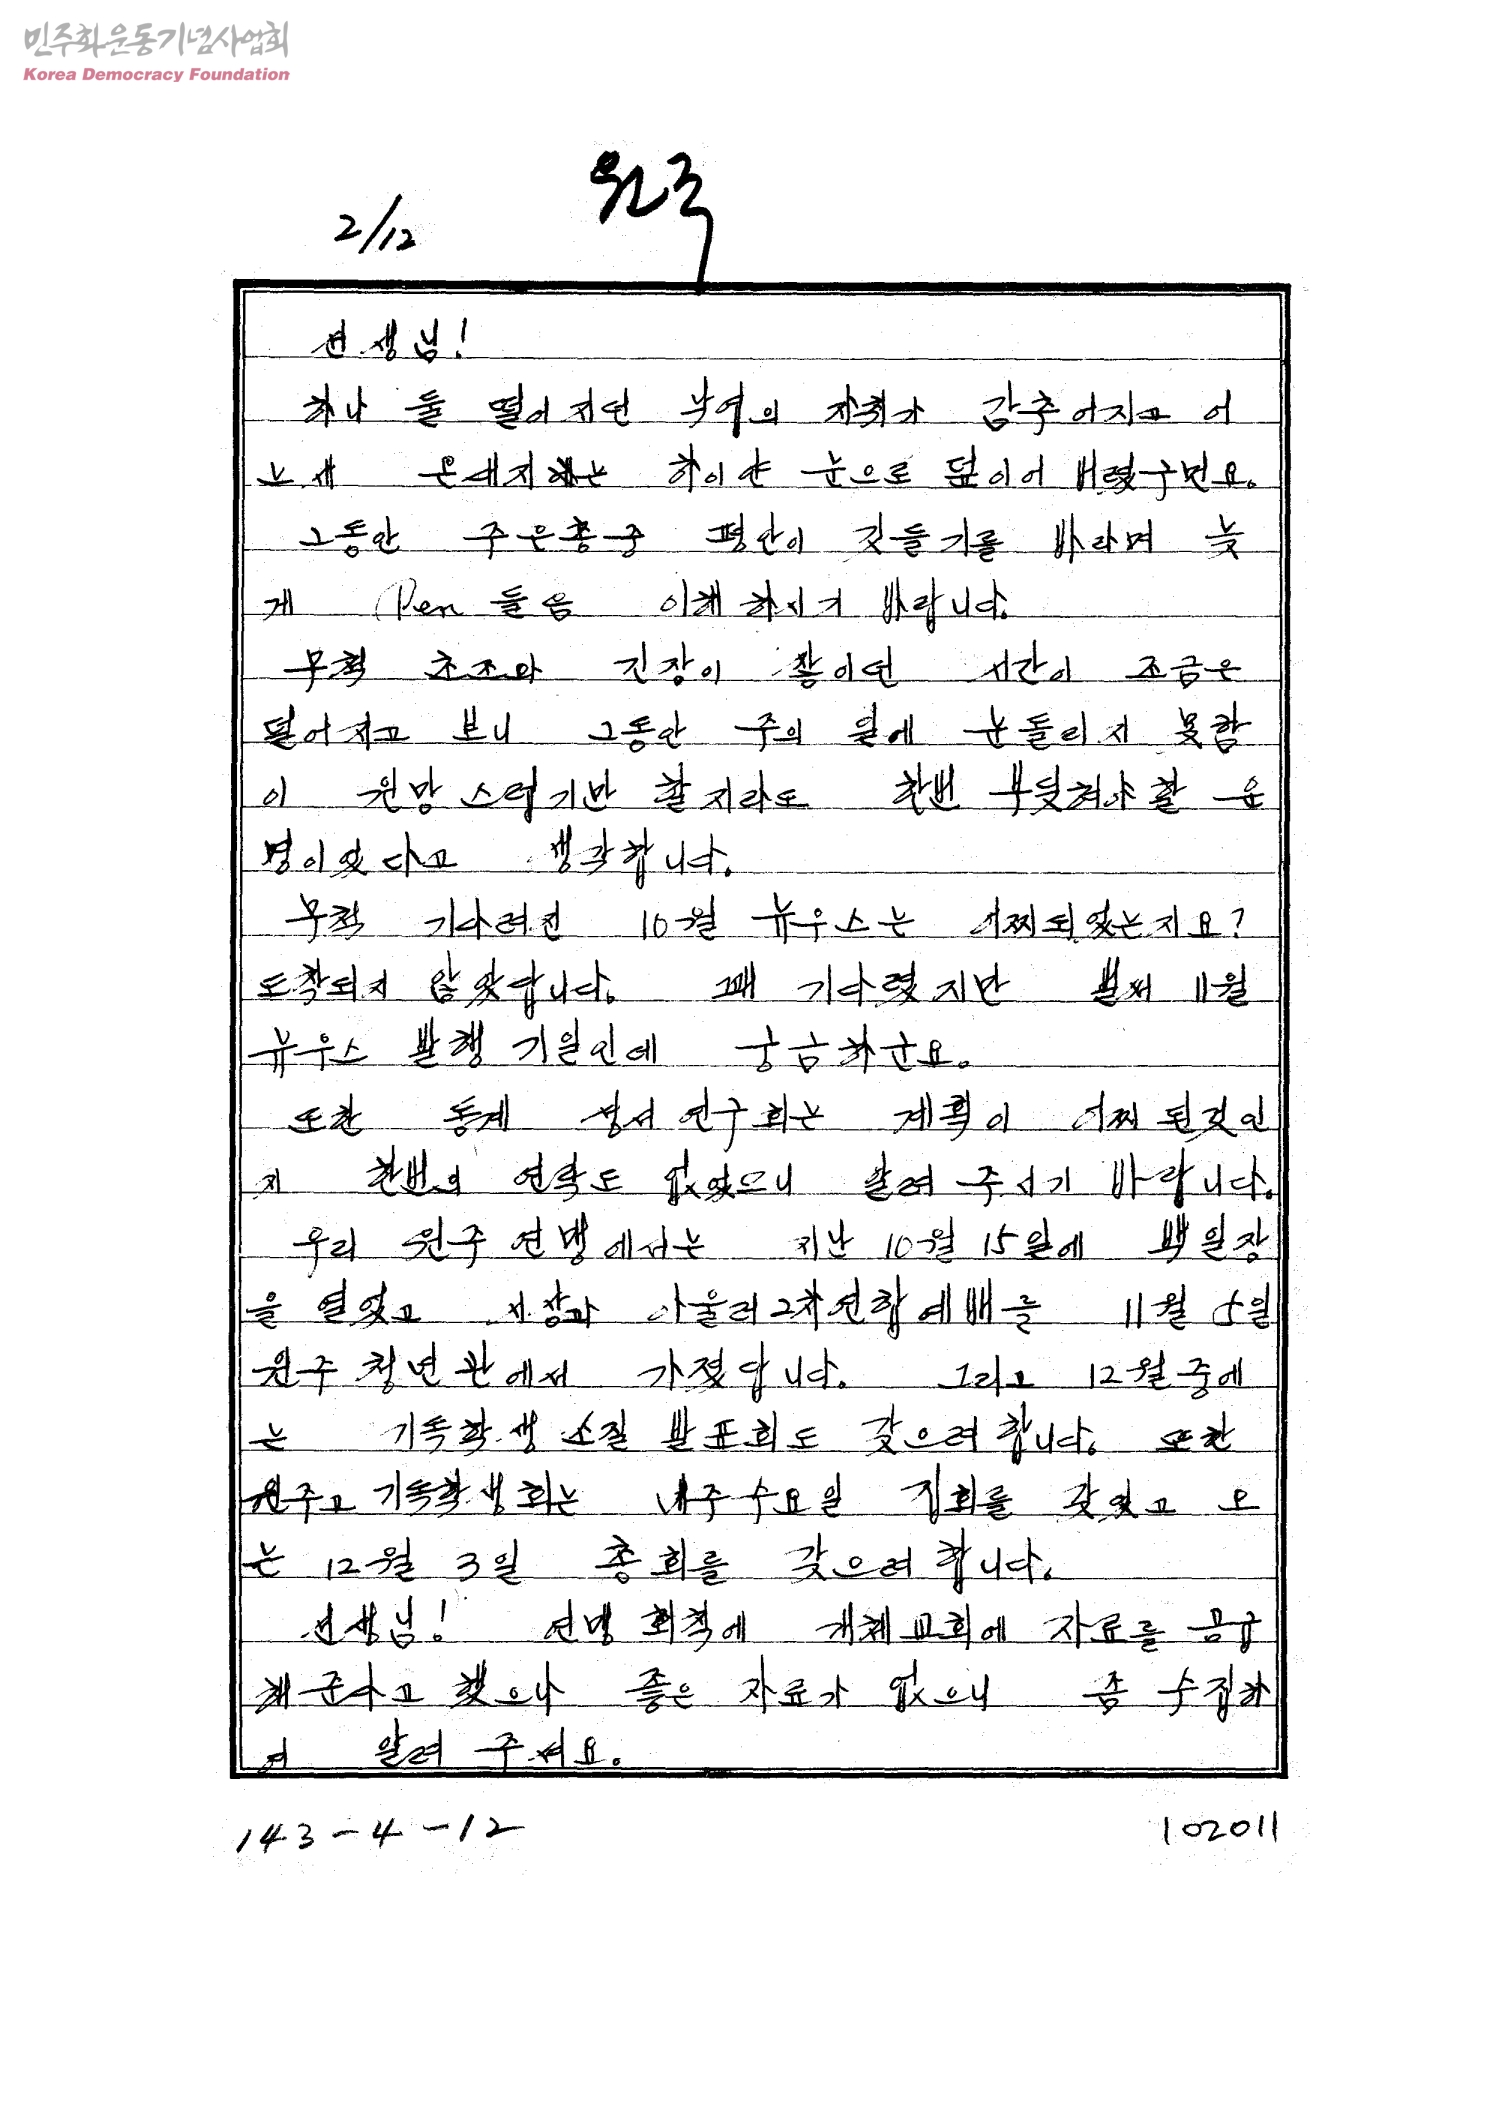 민주화운동기념사업회
Korea Democracy Foundation
원주
2/12
선생님!
하나 둘 떨어지던 낙엽의 자취가 감추어지고 어
느새 온대지에는 하이얀 눈으로 덮이어 버렸구먼요.
그동안 주은총중 평안이 깃들기를 바라며 늦
게 Pen 들음 이해하시기 바랍니다.
무척 초조와 긴장이 흘이던 시간이 조금은
덜어지고 보니 그동안 주의 일에 눈돌리지 못함
이 원망스럽기만 할지라도 한번 부딪혀야할 운
명이었다고 생각합니다.
무척 기다려진 10월 뉴우스는 어찌되었는지요?
도착되지 않았답니다. 꽤 기다렸지만 벌써 11월
뉴우스 발행 기일인데 궁금하군요.
또한 동계 성서연구회는 계획이 어찌된것인
지 한번의 연락도 없었으니 알려 주시기 바랍니다.
우리 원주연맹에서는 지난 10월 15일에 백일장
을 열었고 시상과 아울러 2차연합예배를 11월 5일
원주청년관에서 가졌답니다. 그리고 12월중에
는 기독학생 소질 발표회도 갖으려합니다. 또한
원주고 기독학생회는 매주 수요일 집회를 갖었고 오
는 12월 3일 총회를 갖으려합니다.
선생님! 연맹 회칙에 개체교회에 자료를 공급
해준다고 했으나 좋은 자료가 없으니 좀 수집하
여 알려 주셔요.
143-4-12
102011